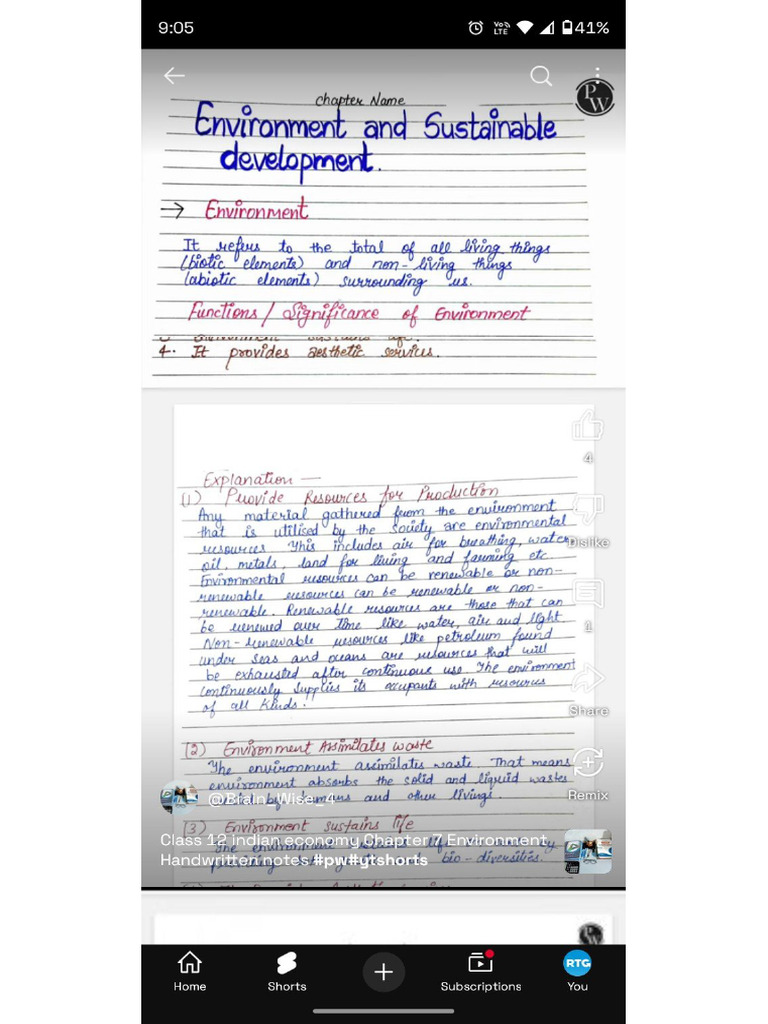 9:05
Vo)) LTE
41%
PW
Chapter Name
Environment and Sustainable
development.
→ Environment
It refers to the total of all living things
(biotic elements) and non-living things
(abiotic elements) surrounding us.
Functions / Significance of Environment
4. It provides aesthetic services.
Explanation —
(1) Provide Resources for Production
Any material gathered from the environment
that is utilised by the society are environmental
resources. This includes air for breathing, water
oil, metals, land for living and farming etc.
Environmental resources can be renewable or non-
renewable resources can be renewable or non-
renewable. Renewable resources are those that can
be renewed over time like water, air and light.
Non-renewable resources like petroleum found
under seas and oceans are resources that will
be exhausted after continuous use. The environment
continuously supplies its occupants with resources
of all kinds.
4
Dislike
1
Share
Remix
(2) Environment Assimilates waste
The environment assimilates waste. That means
environment absorbs the solid and liquid wastes
by humans and other livings.
@Brain_Wise_4
(3) Environment sustains life
The environment
bio-diversities.
Class 12 indian economy Chapter 7 Environment
Handwritten notes #pw#ytshorts
PW
Home
Shorts
Subscriptions
RTG
You